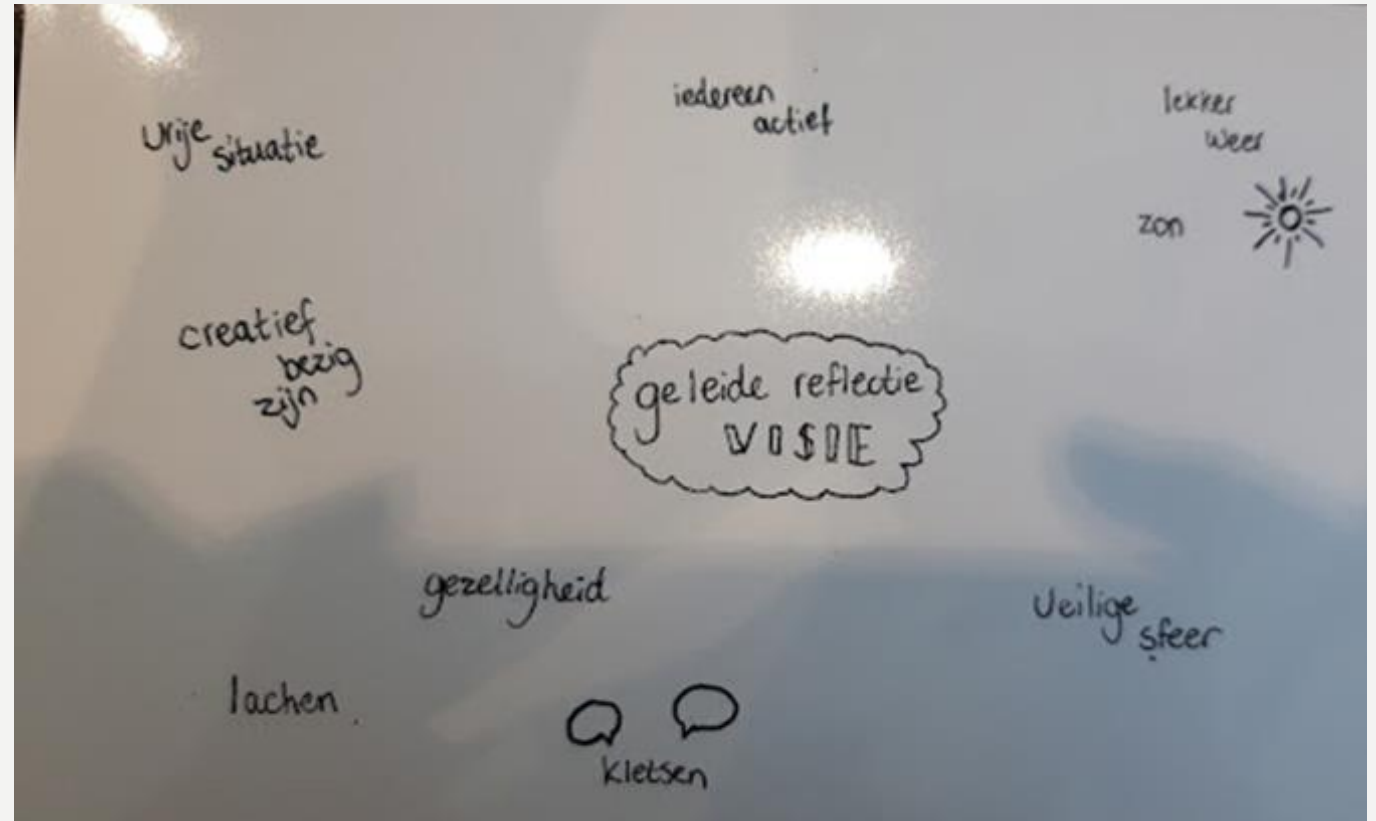 vrije
situatie
iedereen
actief
lekker
weer
zon
creatief
bezig
zijn
geleide reflectie
VISIE
gezelligheid
veilige
sfeer
lachen
kletsen